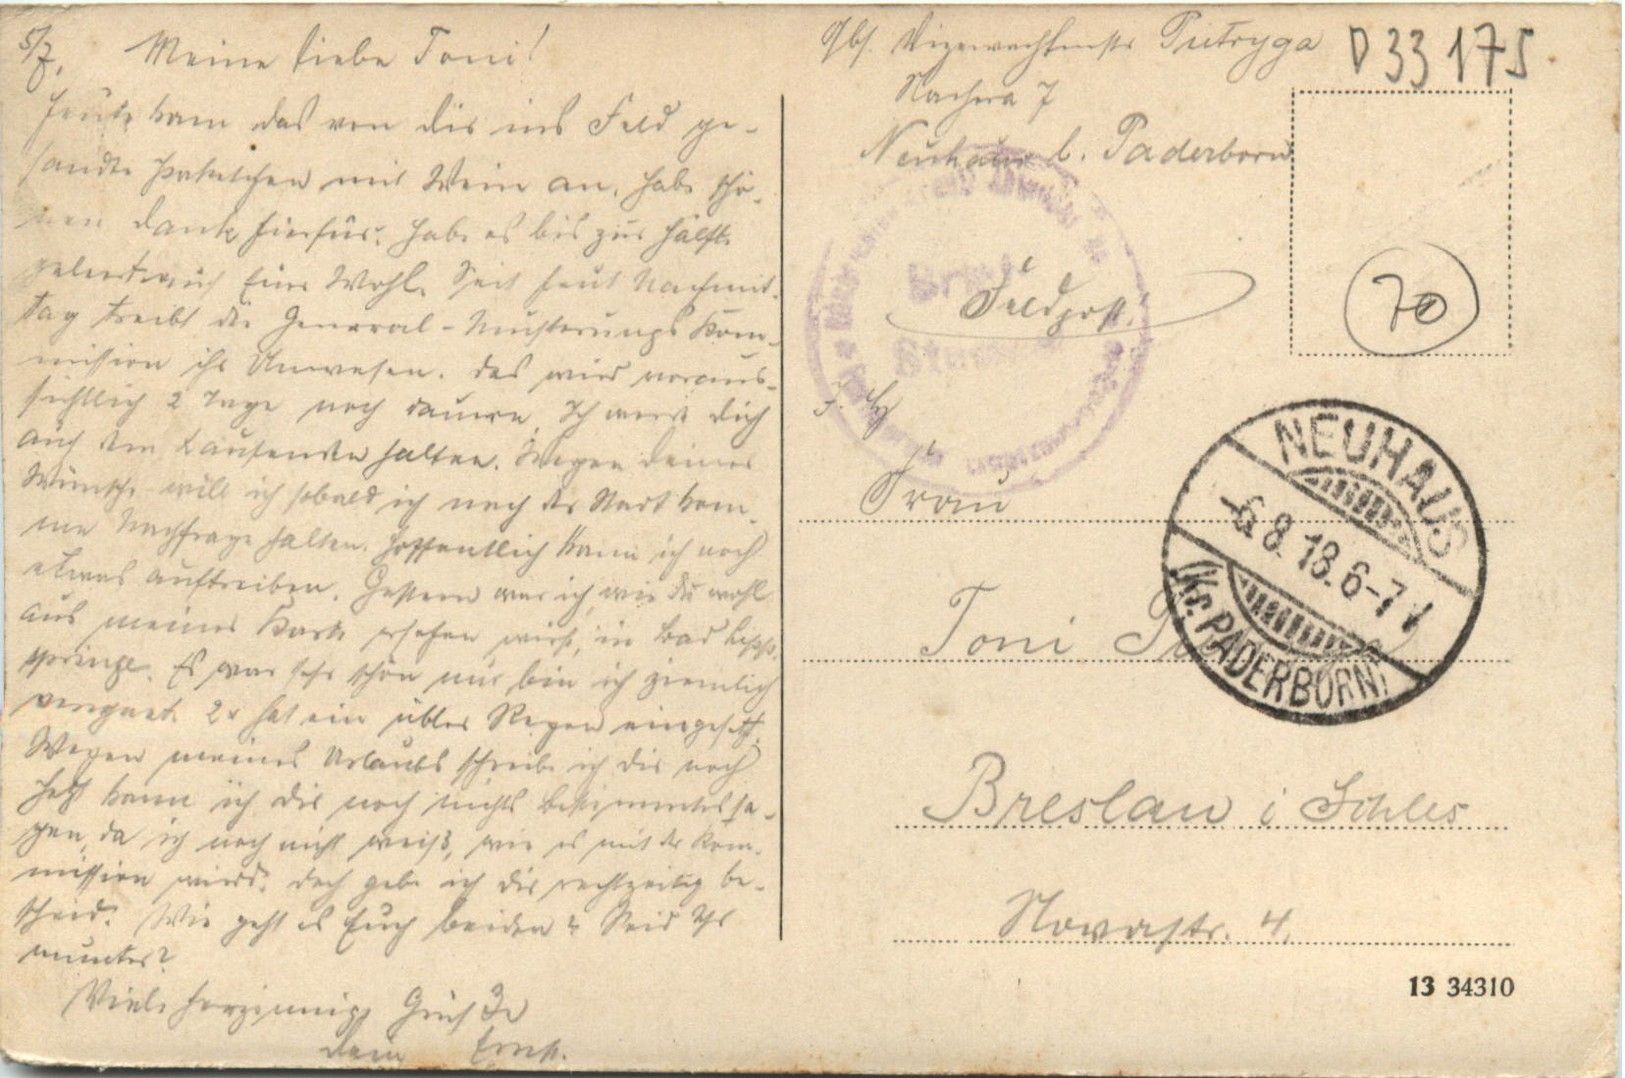 5/7. Meine liebe Toni!
Heute kam das von dir ins Feld ge-
sandte Paketchen mit Wein an. Habe schö-
nen Dank hierfür. Habe es bis zur Hälfte
geleert auf Eure Wohl. Seit heut Nachmit-
tag treibt die General-Musterungs Kom-
mission ihr Unwesen. Das wird voraus-
sichtlich 2 Tage noch dauern. Ich werde dich
auf dem Laufenden halten. Wegen deiner
Wünsche will ich sobald ich nach der Stadt kom-
me Nachfrage halten. Hoffentlich kann ich noch
etwas auftreiben. Gestern war ich, wie du wohl
aus meiner Karte ersehen wirst, in Bad Lipp-
springe. Es war sehr schön nur bin ich ziemlich
verregnet. hat ein übler Regen eingesetzt.
Wegen meines Urlaubs schreibe ich dir noch
Jetzt kann ich dir noch nichts bestimmtes sa-
gen, da ich noch nicht weiß, wie es mit der Kom-
mission wird. Doch gebe ich dir rechtzeitig be-
scheid. Wie geht es Euch beiden? Seid Ihr
munter?
Viele herzinnige Grüße
Dein Ernst.
Abs. Vizewachtmstr Pietryga
7
Neuhaus b. Paderborn
D 33 175
Feldpost.
70
Frau
Toni
Breslau i Schles
Novastr. 4.
NEUHAUS
-6.8.18.6-7 V
(Kr. PADERBORN)
13 34310